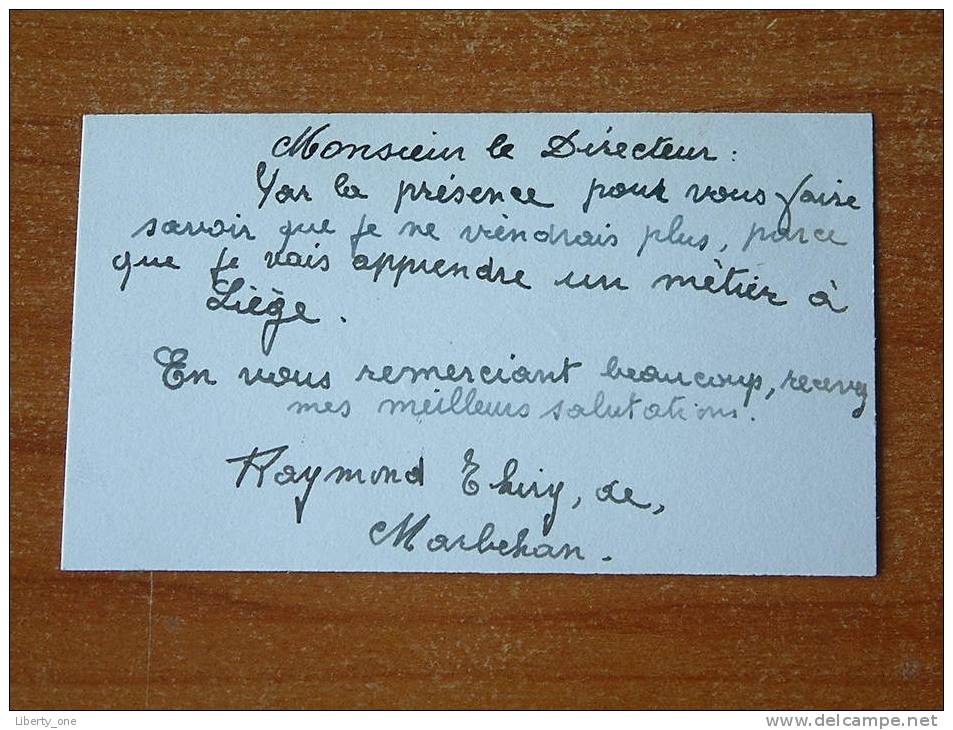 Monsieur le Directeur :
Par la présence pour vous faire
savoir que je ne viendrais plus, parce
que je vais apprendre un métier à
Liège .
En vous remerciant beaucoup, recevez
mes meilleurs salutations.
Raymond Thiry, de,
Marbehan .
Liberty_one
www.delcampe.net